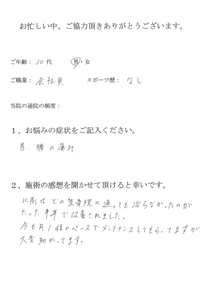 お忙しい中、ご協力頂きありがとうございます。
ご年齢：30代 男・女
ご職業：会社員 スポーツ歴：なし
当院の通院の頻度：
１、お悩みの症状をご記入ください。
首、腰の痛み
２、施術の感想を聞かせて頂けると幸いです。
以前はどの整骨院に通っても治らなかったのが
たった半年で改善されました。
今も月1回のペースでメンテナンスしてもらってますが
大変助かってます。